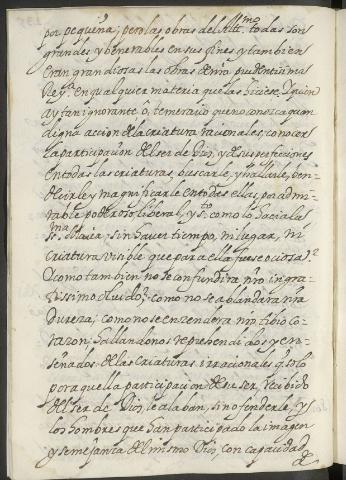 por pequeña; pero las obras del Altmo. todas son
grandes, y venerables en sus fines, y tambien
eran grandiosas las obras de nra prudentissima
Reyª. en qualquier materia que las hiciese. Y quien
ay tan ignorante, ô, temerario que no conozca quan
digna accion de la criatura racional es, conocer
la participacion del ser de Dios, y de sus perfecciones
en todas las criaturas, buscarle, y hallarle, ben-
decirle, y magnificarle en todas ellas, por admi-
rable poderoso liberal, y sto. como lo hacia la s
sma. Maria: sin haver tiempo, ni lugar, ni
criatura visible que para ella fuese ociosa?
Y como tambien no se confundira nro ingra-
tissimo oluido? como no se ablandara nra
dureza; como no se encendera nro tibio co-
razon; hallandonos reprehendidos, y en-
señados de las criaturas irracionales q. solo
por aquella participacion de su ser, recibido
del ser de Dios le alaban, sin ofenderle, y
los hombres que han participado la imagen
y semejanza del mismo Dios, con capacidad
de